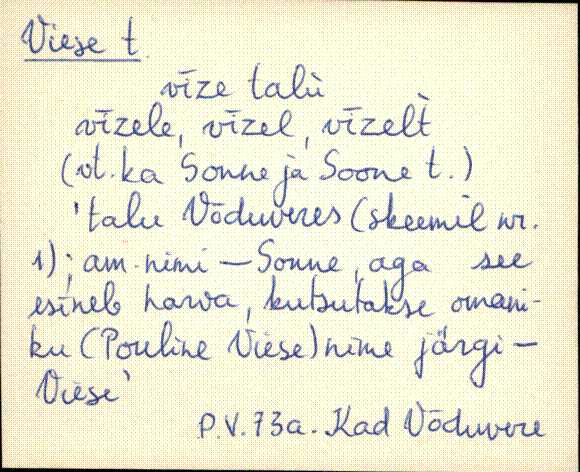 Viese t.
vīze talù
vīzele, vīzel, vīzelt̀
(vt. ka Sonne ja Soone t.)
'talu Võduveres (skeemil nr.
1); am. nimi – Sonne, aga see
esineb harva, kutsutakse omani-
ku (Pouline Viese) nime järgi –
Viese'
P.V. 73a. Kad Võduvere